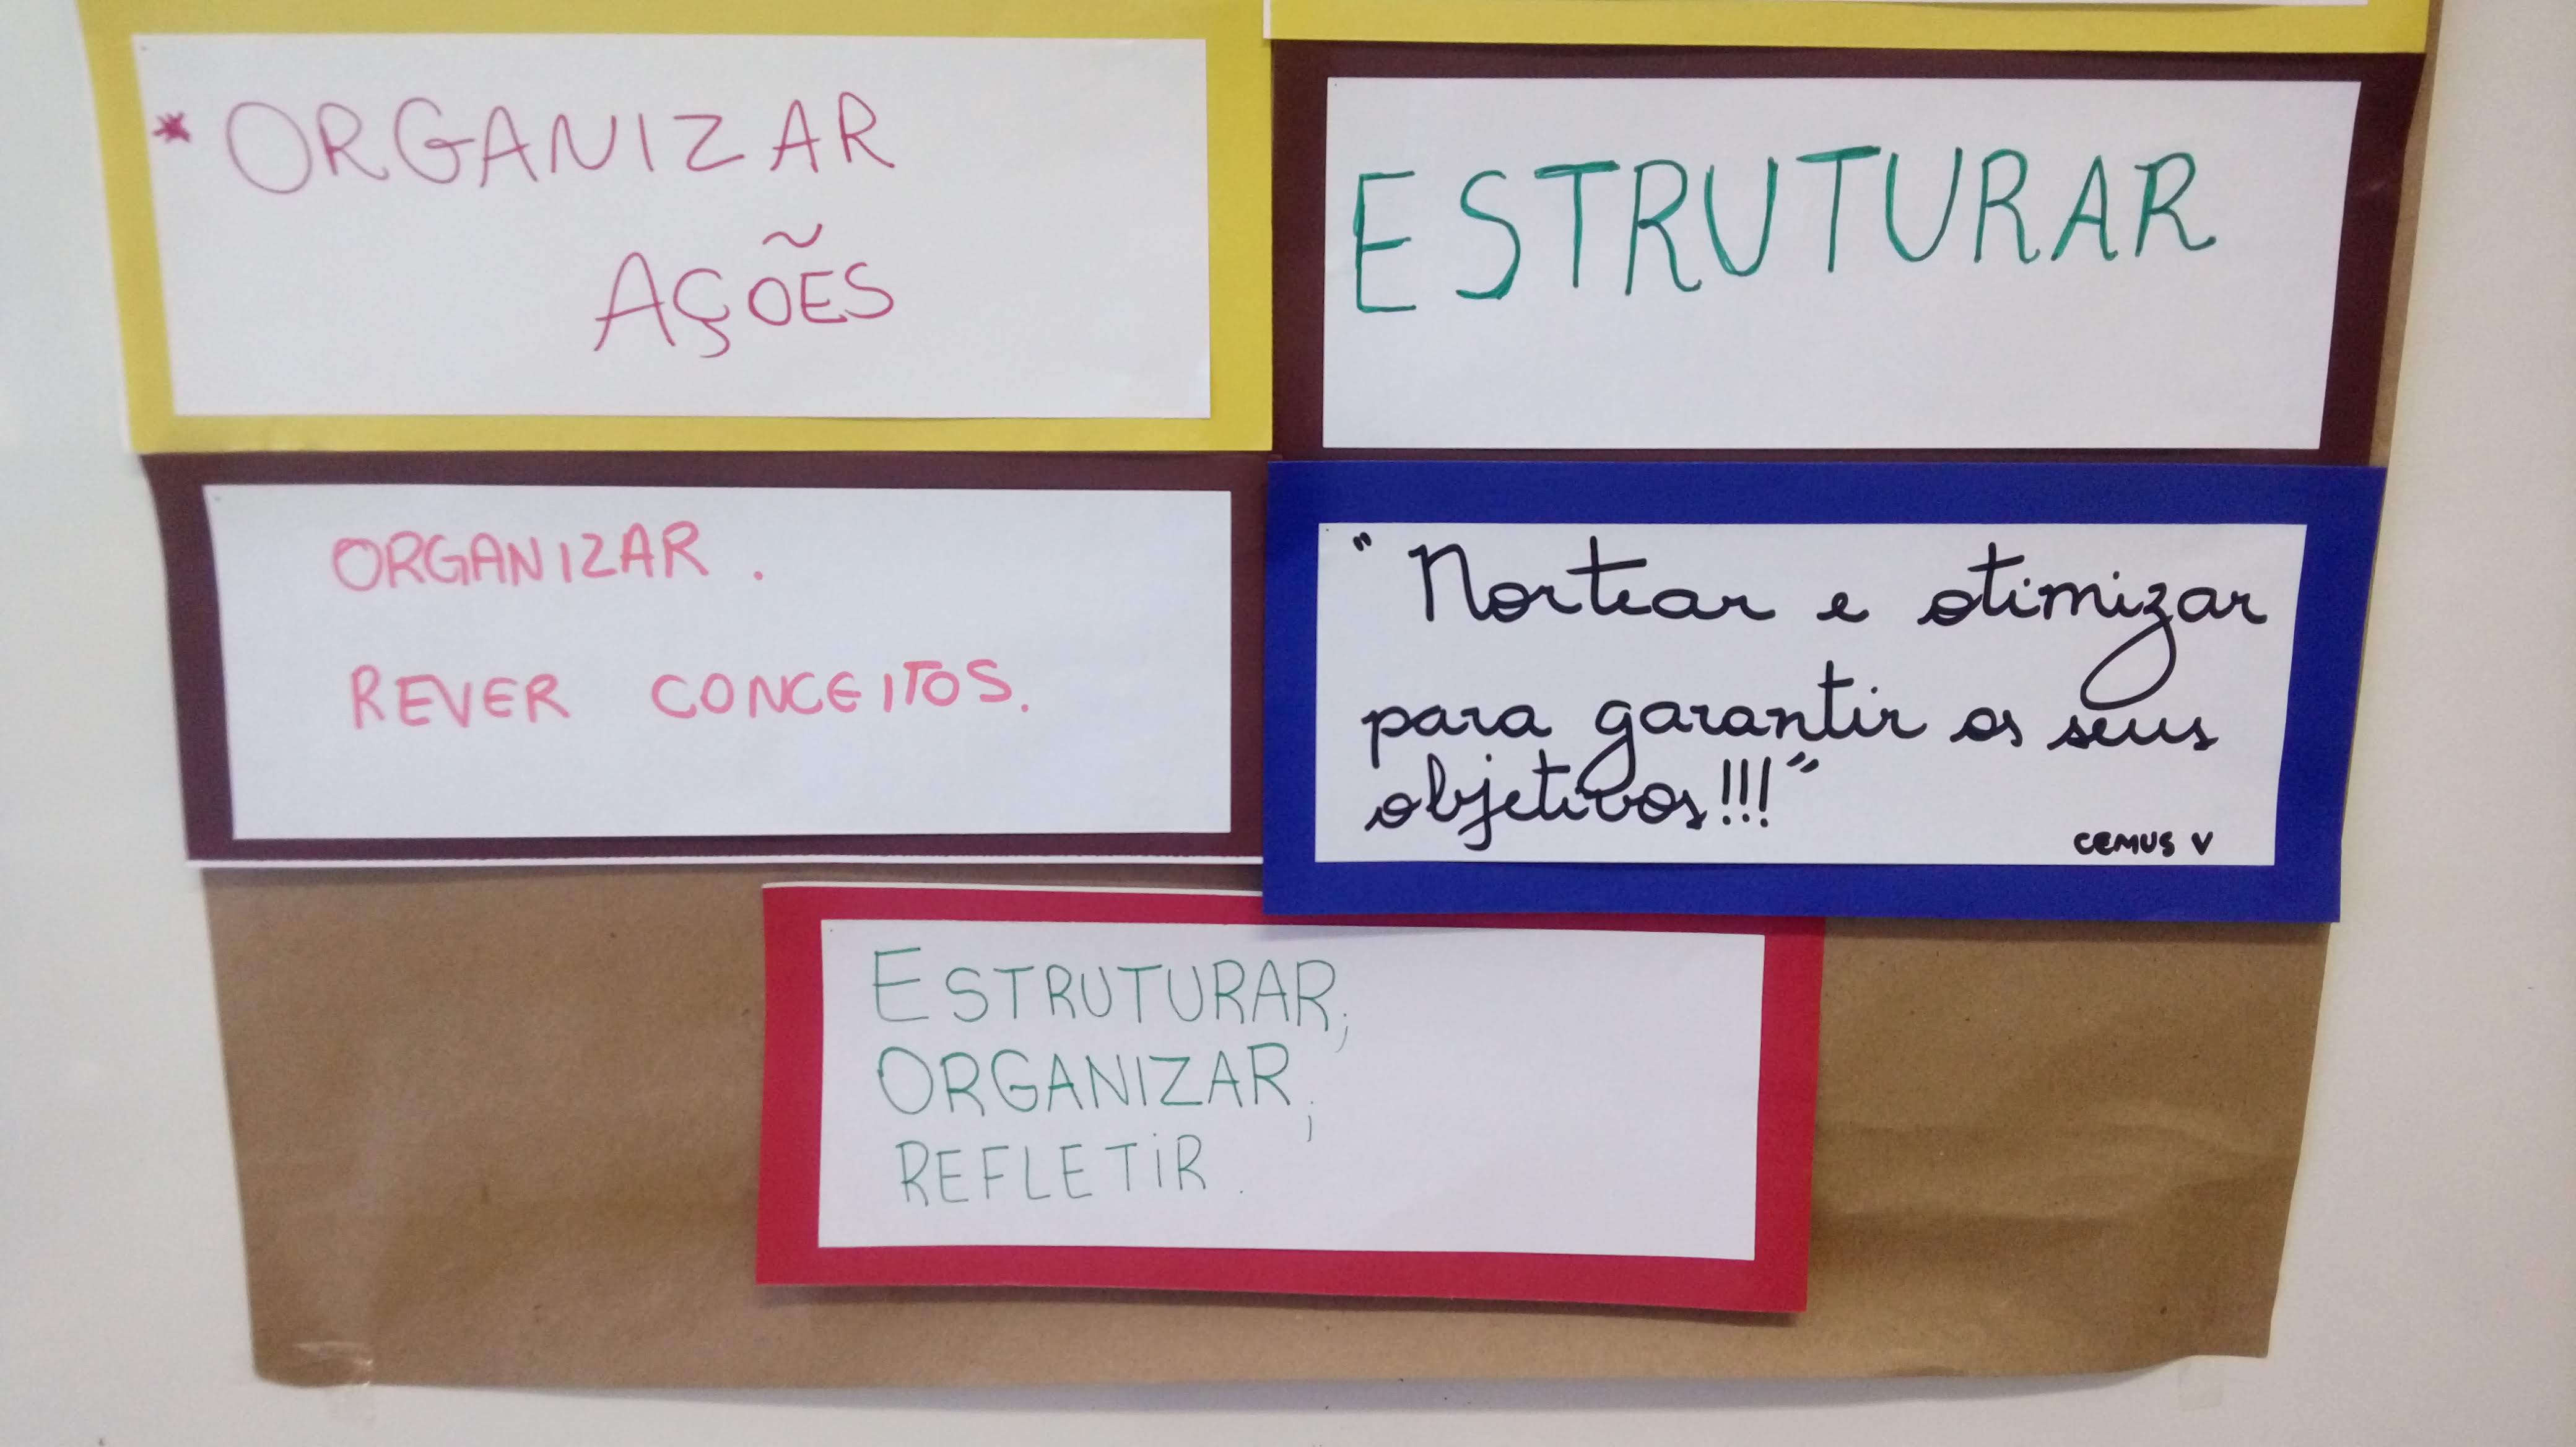 * ORGANIZAR
AÇÕES
ESTRUTURAR
ORGANIZAR.
REVER CONCEITOS.
"Nortear e otimizar
para garantir os seus
objetivos!!!"
CEMUS V
ESTRUTURAR;
ORGANIZAR;
REFLETIR.